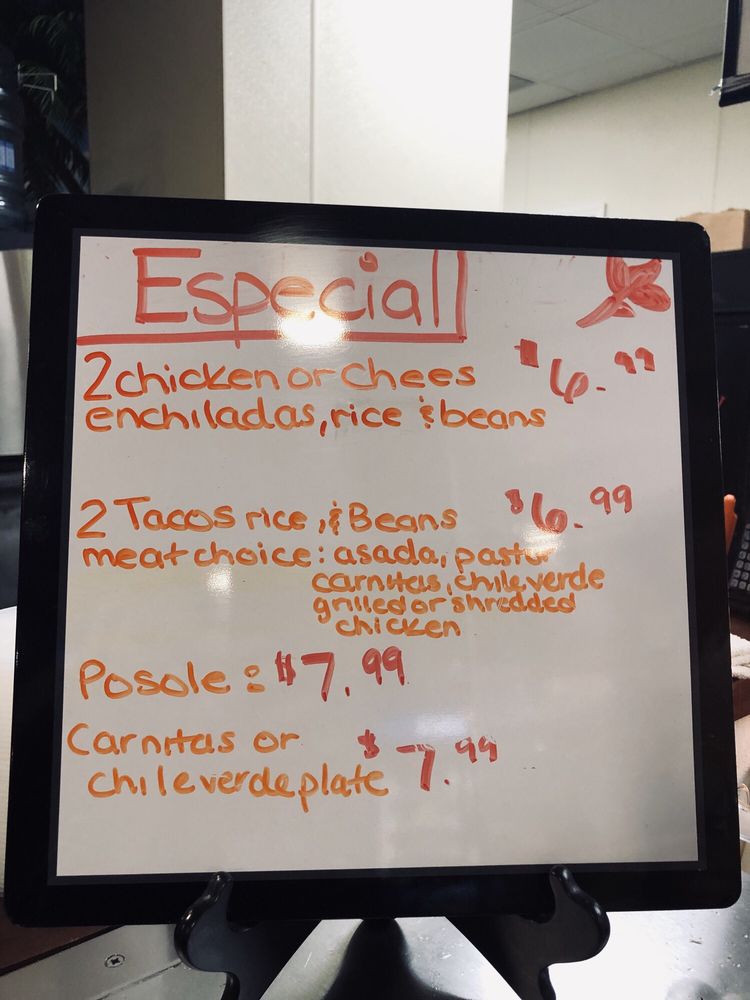 Especial
2 chicken or Chees $6.99
enchiladas, rice & beans
2 Tacos rice, & Beans $6.99
meat choice: asada, pastor
carnitas, chile verde
grilled or shredded
chicken
Posole: $7.99
Carnitas or $7.99
chile verde plate